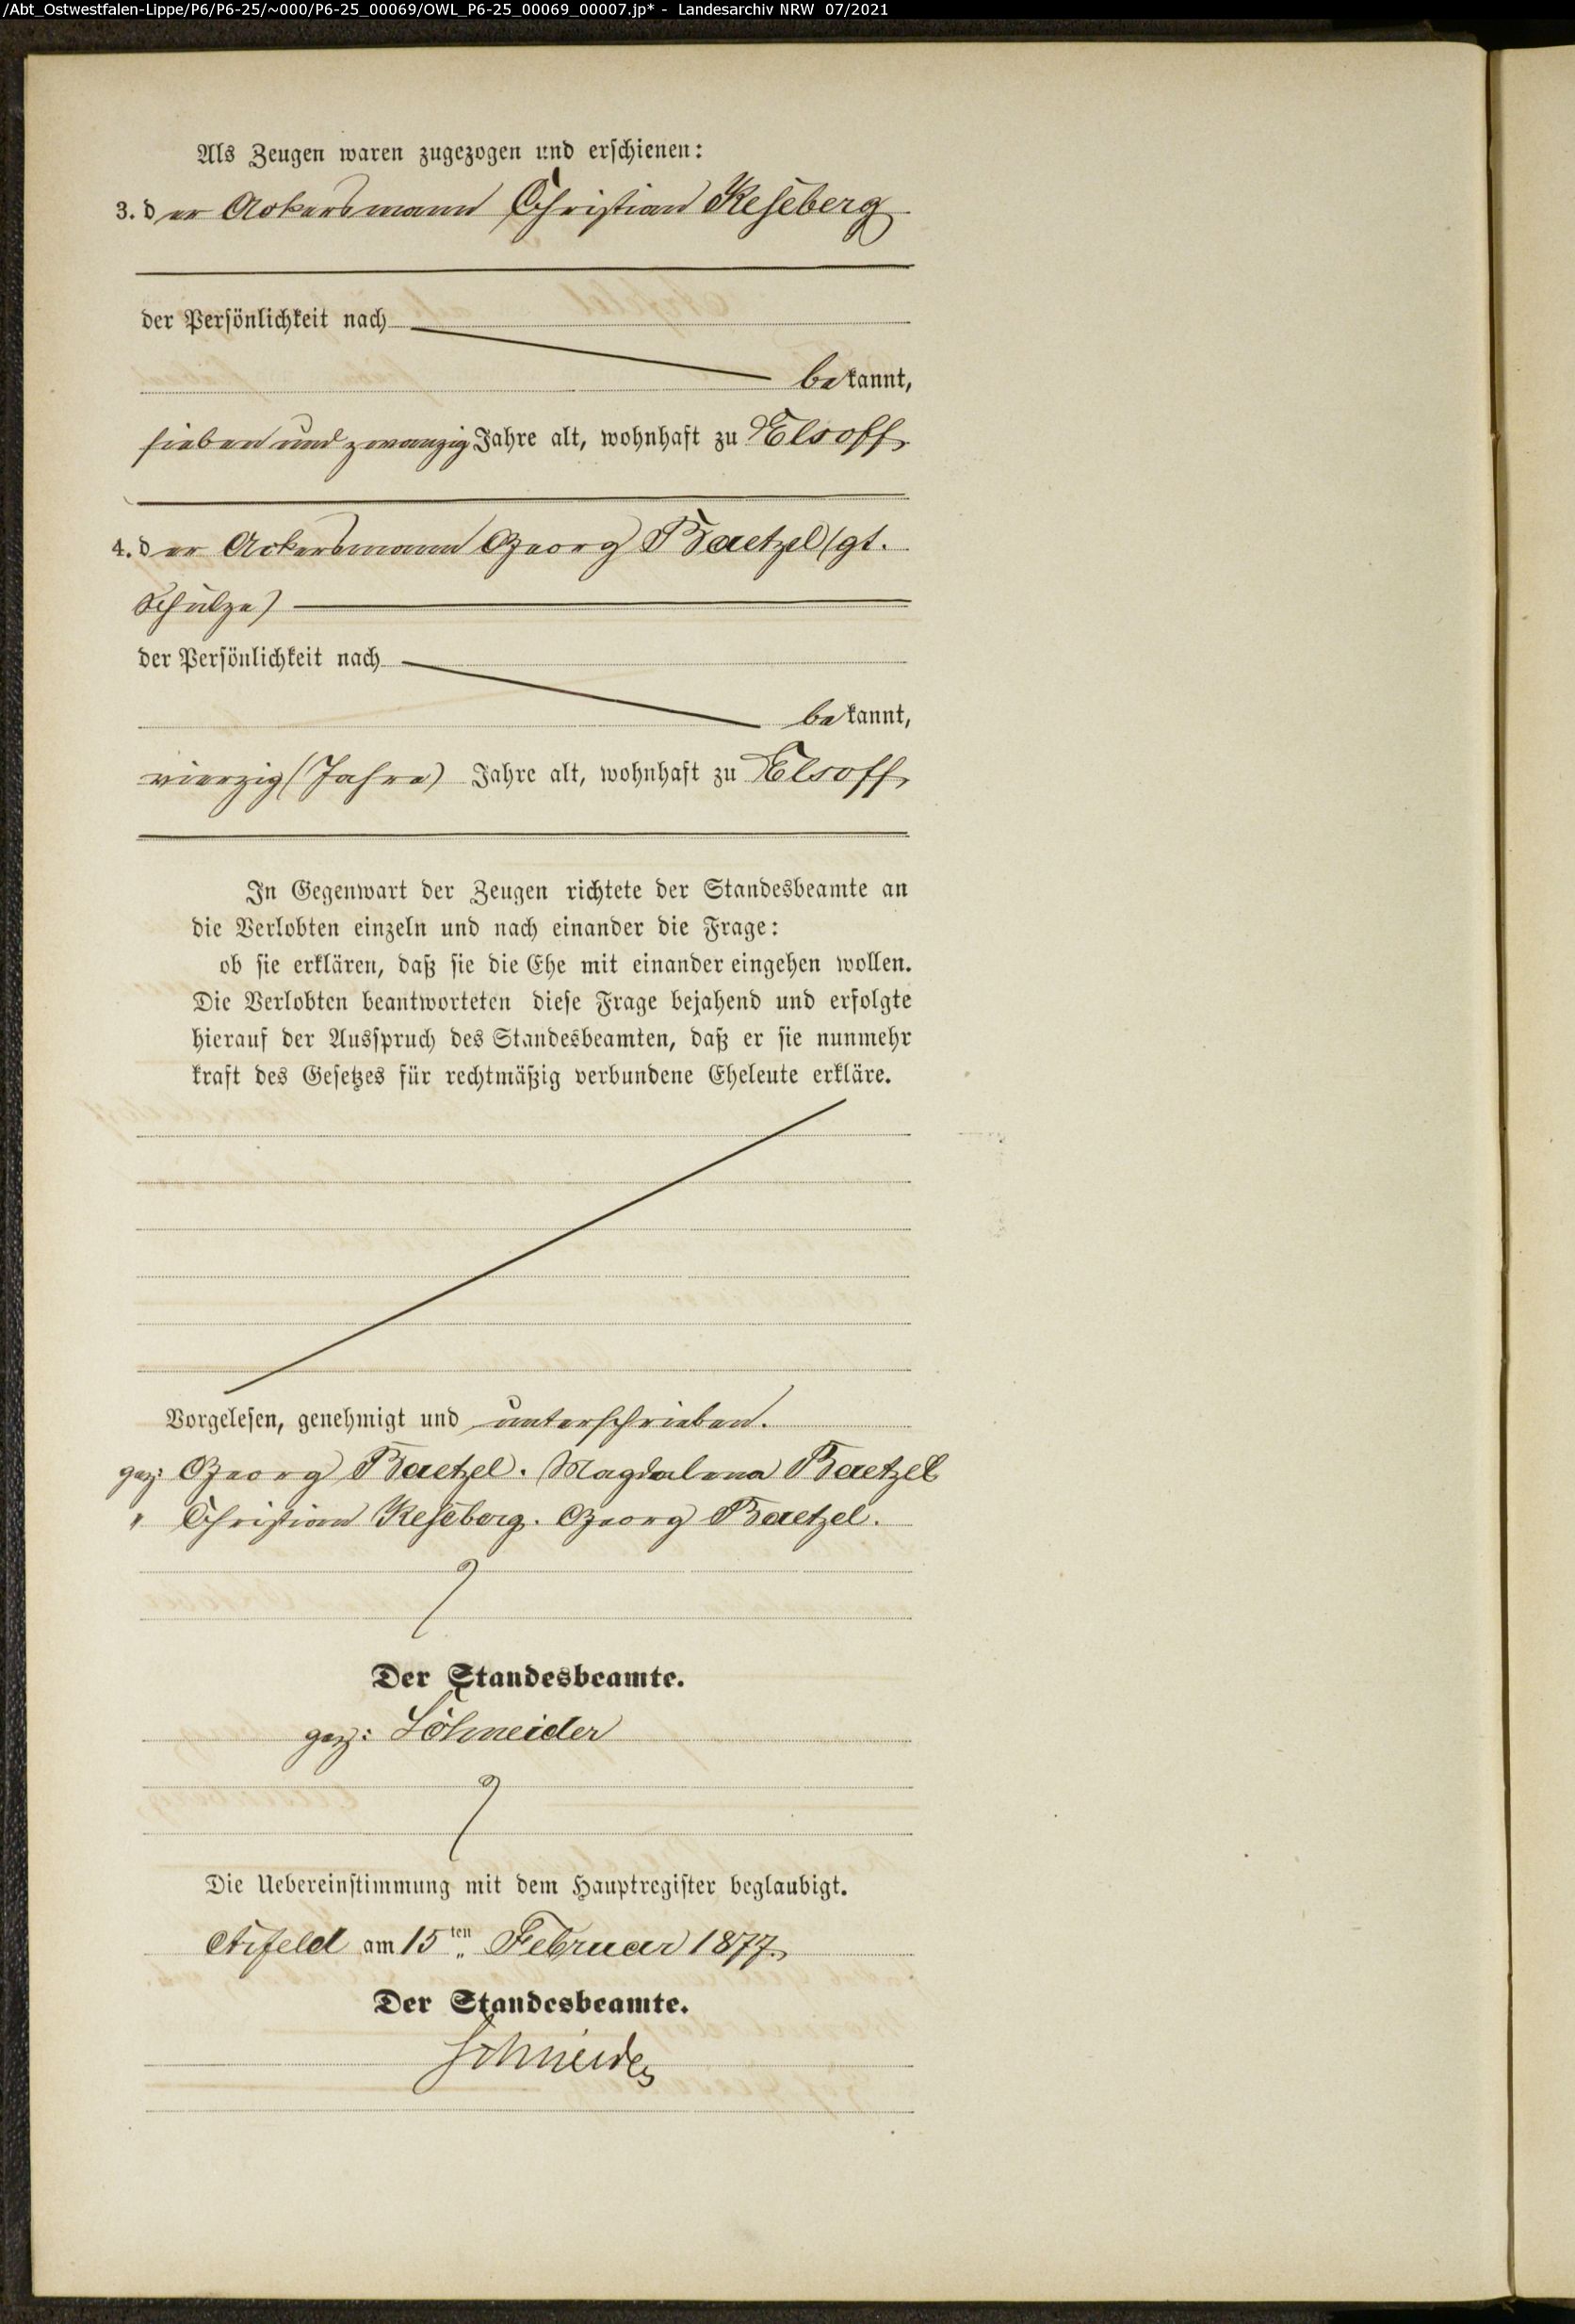 /Abt_Ostwestfalen-Lippe/P6/P6-25/~000/P6-25_00069/OWL_P6-25_00069_00007.jp* - Landesarchiv NRW 07/2021
Als Zeugen waren zugezogen und erschienen:
3. der Ackersmann Christian Keseberg
der Persönlichkeit nach
bekannt,
sieben und zwanzig Jahre alt, wohnhaft zu Elsoff,
4. der Ackersmann Georg Baetzel (gt.
Schülze)
der Persönlichkeit nach
bekannt,
vierzig (Jahre) Jahre alt, wohnhaft zu Elsoff,
In Gegenwart der Zeugen richtete der Standesbeamte an
die Verlobten einzeln und nach einander die Frage:
ob sie erklären, daß sie die Ehe mit einander eingehen wollen.
Die Verlobten beantworteten diese Frage bejahend und erfolgte
hierauf der Ausspruch des Standesbeamten, daß er sie nunmehr
kraft des Gesetzes für rechtmäßig verbundene Eheleute erkläre.
Vorgelesen, genehmigt und unterschrieben.
gez: Georg Baetzel. Magdalena Baetzel
" Christian Keseberg. Georg Baetzel.
Der Standesbeamte.
gez: Schneider
Die Uebereinstimmung mit dem Hauptregister beglaubigt.
Arfeld am 15ten Februar 1877.
Der Standesbeamte.
Schneider